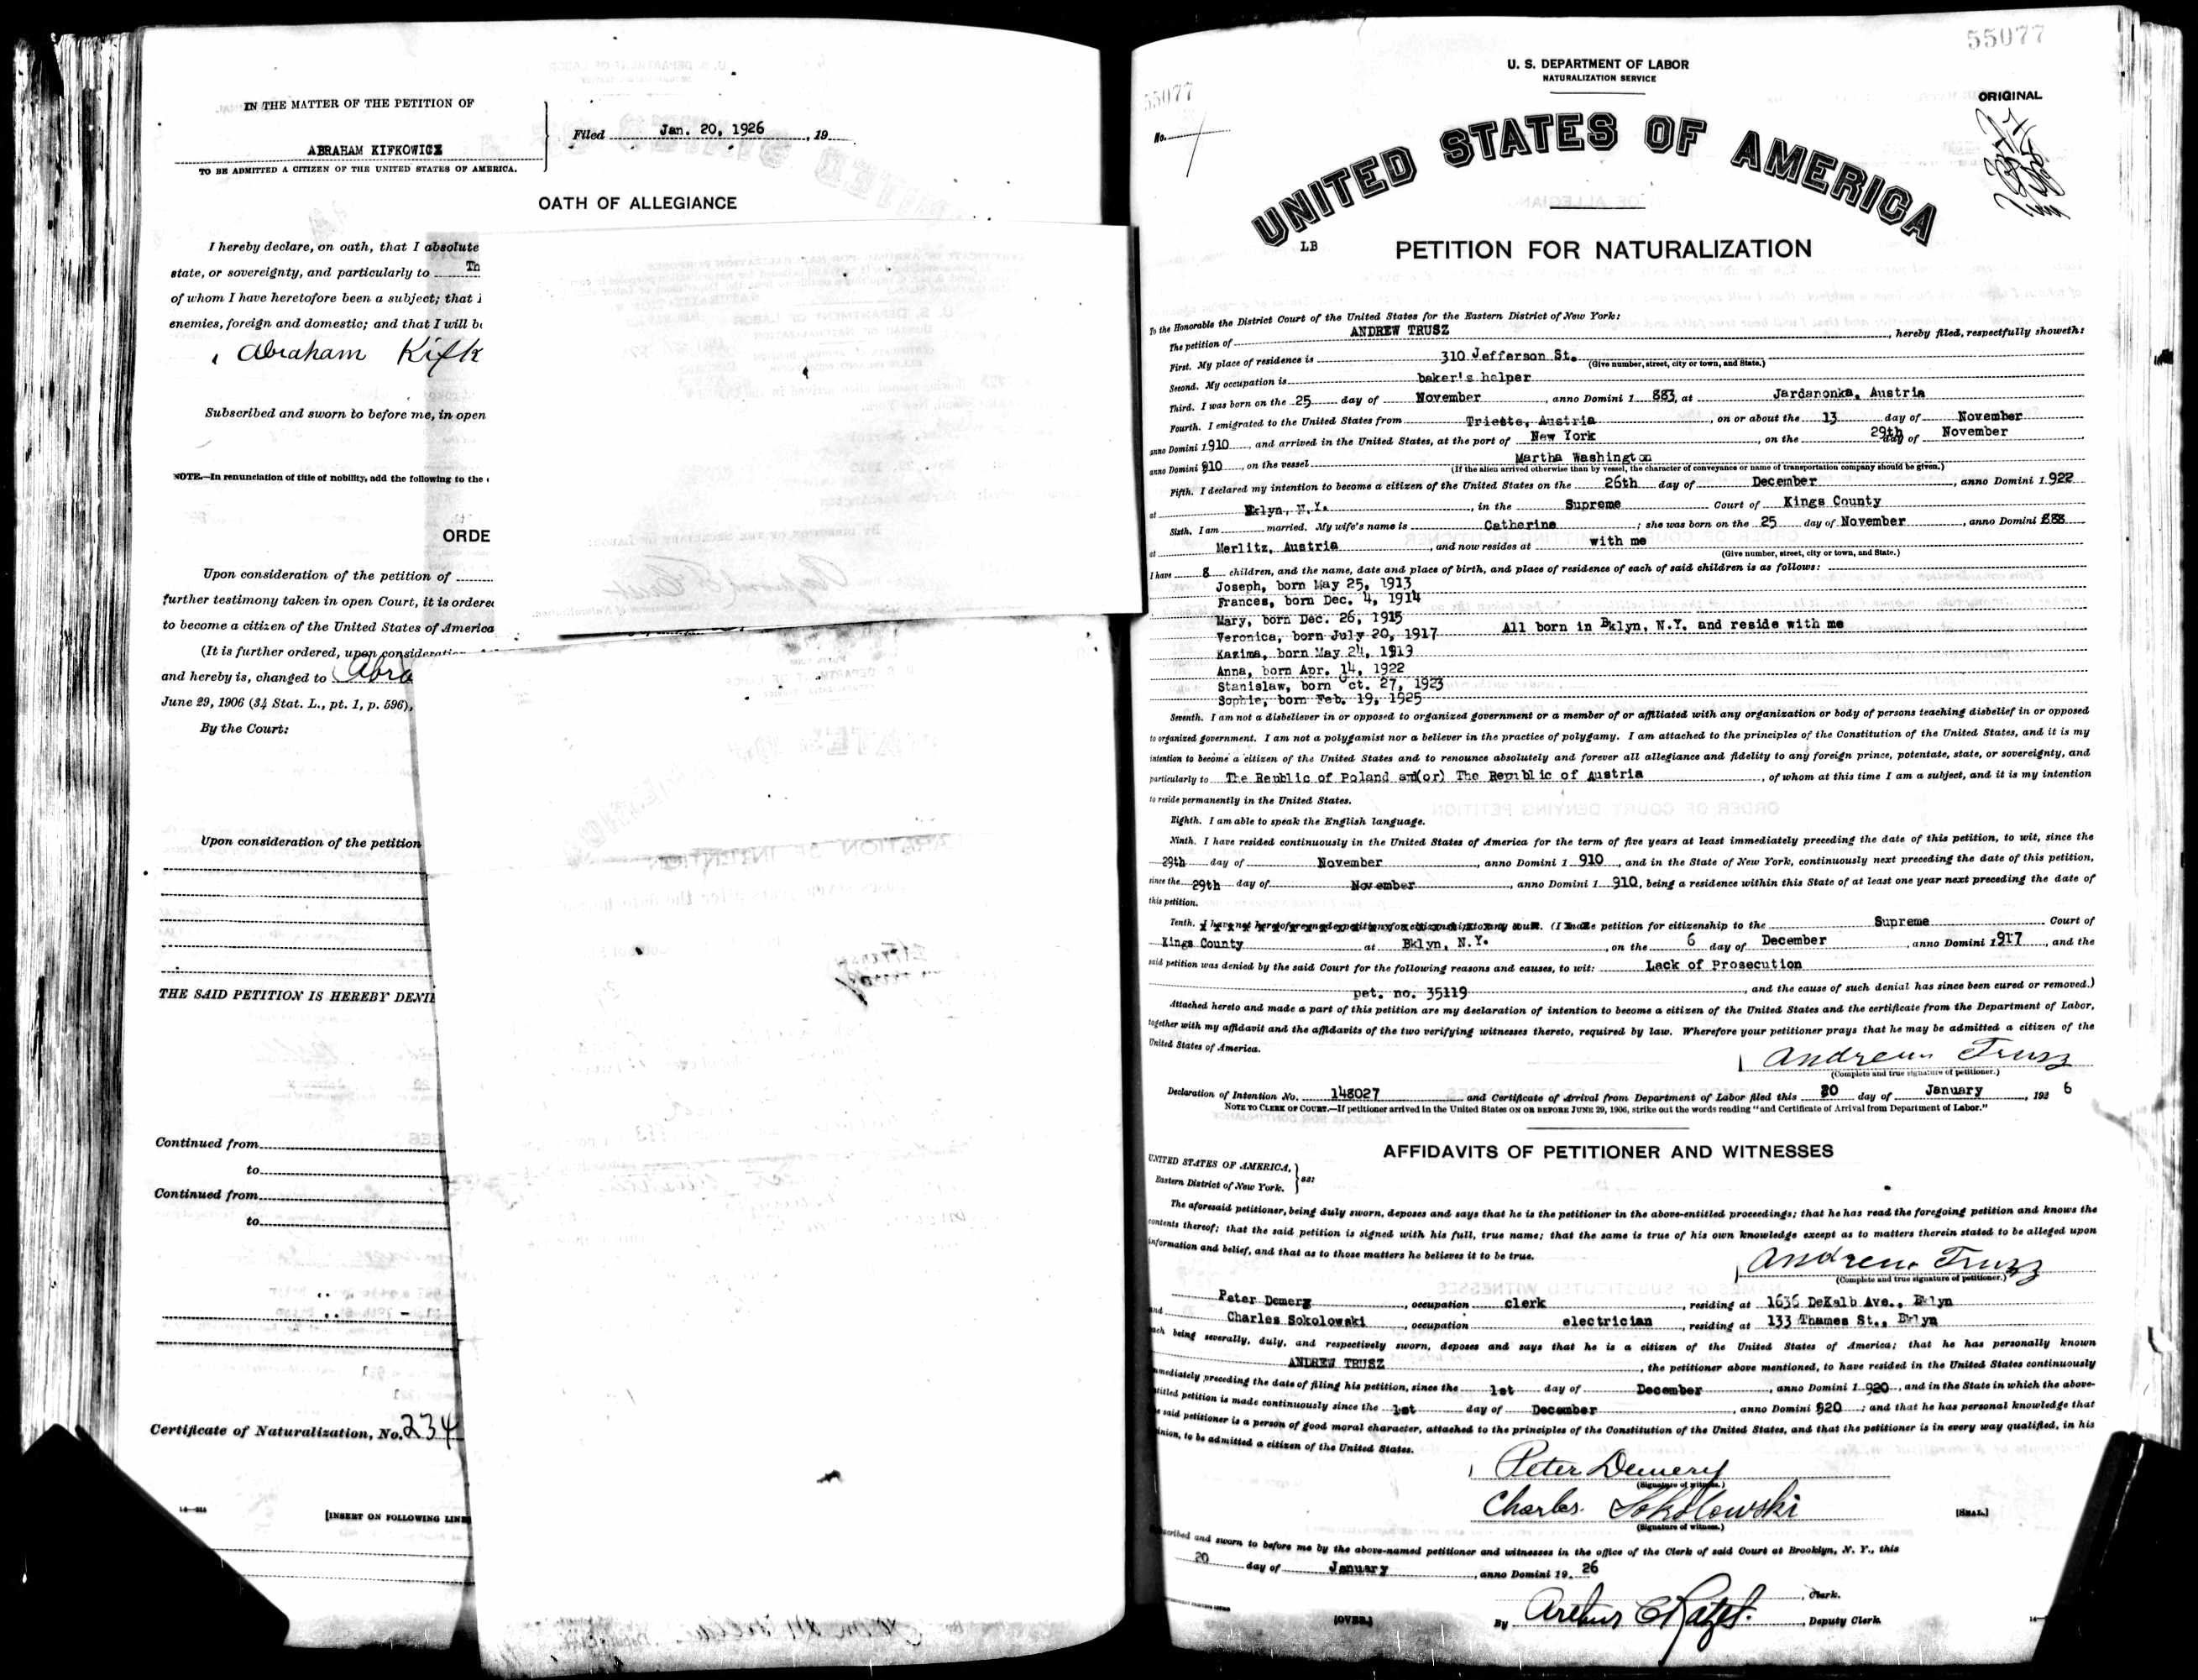 IN THE MATTER OF THE PETITION OF
ABRAHAM KIFKOWICZ
TO BE ADMITTED A CITIZEN OF THE UNITED STATES OF AMERICA.
Filed Jan. 20, 1926, 19
OATH OF ALLEGIANCE
I hereby declare, on oath, that I absolute
state, or sovereignty, and particularly to Th
of whom I have heretofore been a subject; that
enemies, foreign and domestic; and that I will b
Abraham Kifk
Subscribed and sworn to before me, in open
NOTE.—In renunciation of title of nobility, add the following to the
ORDE
Upon consideration of the petition of
further testimony taken in open Court, it is ordere
to become a citizen of the United States of America
(It is further ordered, upon consideration
and hereby is, changed to Abra
June 29, 1906 (34 Stat. L., pt. 1, p. 596),
By the Court:
Upon consideration of the petition
THE SAID PETITION IS HEREBY DENI
Continued from
to
Continued from
to
Certificate of Naturalization, No. 234
[INSERT ON FOLLOWING LINE
55077
U. S. DEPARTMENT OF LABOR
NATURALIZATION SERVICE
55077
ORIGINAL
No.
UNITED STATES OF AMERICA
LB
PETITION FOR NATURALIZATION
To the Honorable the District Court of the United States for the Eastern District of New York:
The petition of ANDREW TRUSZ, hereby filed, respectfully showeth:
First. My place of residence is 310 Jefferson St.
(Give number, street, city or town, and State.)
Second. My occupation is baker's helper
Third. I was born on the 25 day of November, anno Domini 1 883, at Jardanonka, Austria
Fourth. I emigrated to the United States from Trieste, Austria, on or about the 13 day of November
anno Domini 1 910, and arrived in the United States, at the port of New York, on the 29th day of November
anno Domini 910, on the vessel Martha Washington
(If the alien arrived otherwise than by vessel, the character of conveyance or name of transportation company should be given.)
Fifth. I declared my intention to become a citizen of the United States on the 26th day of December, anno Domini 1 922
at Bklyn, N.Y., in the Supreme Court of Kings County
Sixth. I am married. My wife's name is Catherine; she was born on the 25 day of November, anno Domini 888
at Merlitz, Austria, and now resides at with me
(Give number, street, city or town, and State.)
I have 8 children, and the name, date and place of birth, and place of residence of each of said children is as follows:
Joseph, born May 25, 1913
Frances, born Dec. 4, 1914
Mary, born Dec. 26, 1915
Veronica, born July 20, 1917 All born in Bklyn, N.Y. and reside with me
Kazima, born May 24, 1919
Anna, born Apr. 14, 1922
Stanislaw, born Oct. 27, 1923
Sophie, born Feb. 19, 1925
Seventh. I am not a disbeliever in or opposed to organized government or a member of or affiliated with any organization or body of persons teaching disbelief in or opposed
to organized government. I am not a polygamist nor a believer in the practice of polygamy. I am attached to the principles of the Constitution of the United States, and it is my
intention to become a citizen of the United States and to renounce absolutely and forever all allegiance and fidelity to any foreign prince, potentate, state, or sovereignty, and
particularly to The Republic of Poland and(or) The Republic of Austria, of whom at this time I am a subject, and it is my intention
to reside permanently in the United States.
Eighth. I am able to speak the English language.
Ninth. I have resided continuously in the United States of America for the term of five years at least immediately preceding the date of this petition, to wit, since the
29th day of November, anno Domini 1 910, and in the State of New York, continuously next preceding the date of this petition,
since the 29th day of November, anno Domini 1 910, being a residence within this State of at least one year next preceding the date of
this petition.
Tenth. I have not heretofore made petition for citizenship to any court. (I made petition for citizenship to the Supreme Court of
Kings County at Bklyn, N.Y., on the 6 day of December, anno Domini 1 917, and the
said petition was denied by the said Court for the following reasons and causes, to wit: Lack of Prosecution
pet. no. 35119, and the cause of such denial has since been cured or removed.)
Attached hereto and made a part of this petition are my declaration of intention to become a citizen of the United States and the certificate from the Department of Labor,
together with my affidavit and the affidavits of the two verifying witnesses thereto, required by law. Wherefore your petitioner prays that he may be admitted a citizen of the
United States of America.
Andrew Trusz
(Complete and true signature of petitioner.)
Declaration of Intention No. 148027 and Certificate of Arrival from Department of Labor filed this 20 day of January, 192 6
NOTE TO CLERK OF COURT.—If petitioner arrived in the United States ON OR BEFORE JUNE 29, 1906, strike out the words reading "and Certificate of Arrival from Department of Labor."
AFFIDAVITS OF PETITIONER AND WITNESSES
UNITED STATES OF AMERICA,
Eastern District of New York. ss:
The aforesaid petitioner, being duly sworn, deposes and says that he is the petitioner in the above-entitled proceedings; that he has read the foregoing petition and knows the
contents thereof; that the said petition is signed with his full, true name; that the same is true of his own knowledge except as to matters therein stated to be alleged upon
information and belief, and that as to those matters he believes it to be true.
Andrew Trusz
(Complete and true signature of petitioner.)
Peter Demery, occupation clerk, residing at 1636 DeKalb Ave., Bklyn
and Charles Sokolowski, occupation electrician, residing at 133 Thames St., Bklyn
each being severally, duly, and respectively sworn, deposes and says that he is a citizen of the United States of America; that he has personally known
ANDREW TRUSZ, the petitioner above mentioned, to have resided in the United States continuously
mmediately preceding the date of filing his petition, since the 1st day of December, anno Domini 1 920, and in the State in which the above-
titled petition is made continuously since the 1st day of December, anno Domini 920; and that he has personal knowledge that
e said petitioner is a person of good moral character, attached to the principles of the Constitution of the United States, and that the petitioner is in every way qualified, in his
inion, to be admitted a citizen of the United States.
Peter Demery
(Signature of witness.)
Charles Sokolowski
(Signature of witness.)
[SEAL.]
bscribed and sworn to before me by the above-named petitioner and witnesses in the office of the Clerk of said Court at Brooklyn, N. Y., this
20 day of January, anno Domini 19 26
, Clerk.
[OVER.]
By Arthur, Deputy Clerk.